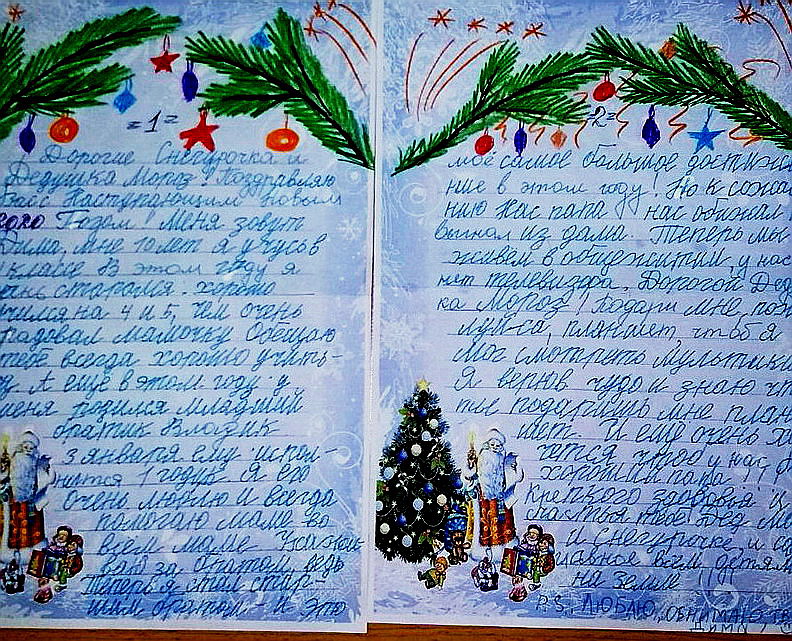 =1=
Дорогие Снегурочка и
Дедушка Мороз! Поздравляю
Вас с Наступающим Новым
Годом! Меня зовут
Дима, мне 10 лет я учусь в
классе. В этом году я
старался. хорошо
учился на 4 и 5, Чем очень
радовал мамочку Обещаю
тебе всегда хорошо учить-
А ещё в этом году у
меня родился младший
братик Владик
3 января ему испол-
нится 1 годик. Я его
очень люблю и всегда
помогаю маме во
всём маме. Ухажи-
ваю за братом, ведь
Теперь я стал стар-
шим братом - и это
=2=
моё самое большое достиже
ние в этом году! Но к сожале
нию Нас папа нас обижал и
выгнал из дома. Теперь мы
живем в общежитии, у нас
нет телевизора. Дорогой Дед
ка Мороз! Подари мне, пож
луйса, планшет, чтоб я
мог смотреть мультики
Я верю в чудо и знаю чт
ты подаришь мне план
шет. И ещё очень хо
чется чтоб у нас, б
хороший папа!
Крепкого здоровья и
счастья тебе Дед Мо
и Снегурочке, и са
главное всем детям
на земле!
P.S. Люблю, обнимаю, тв
Дима